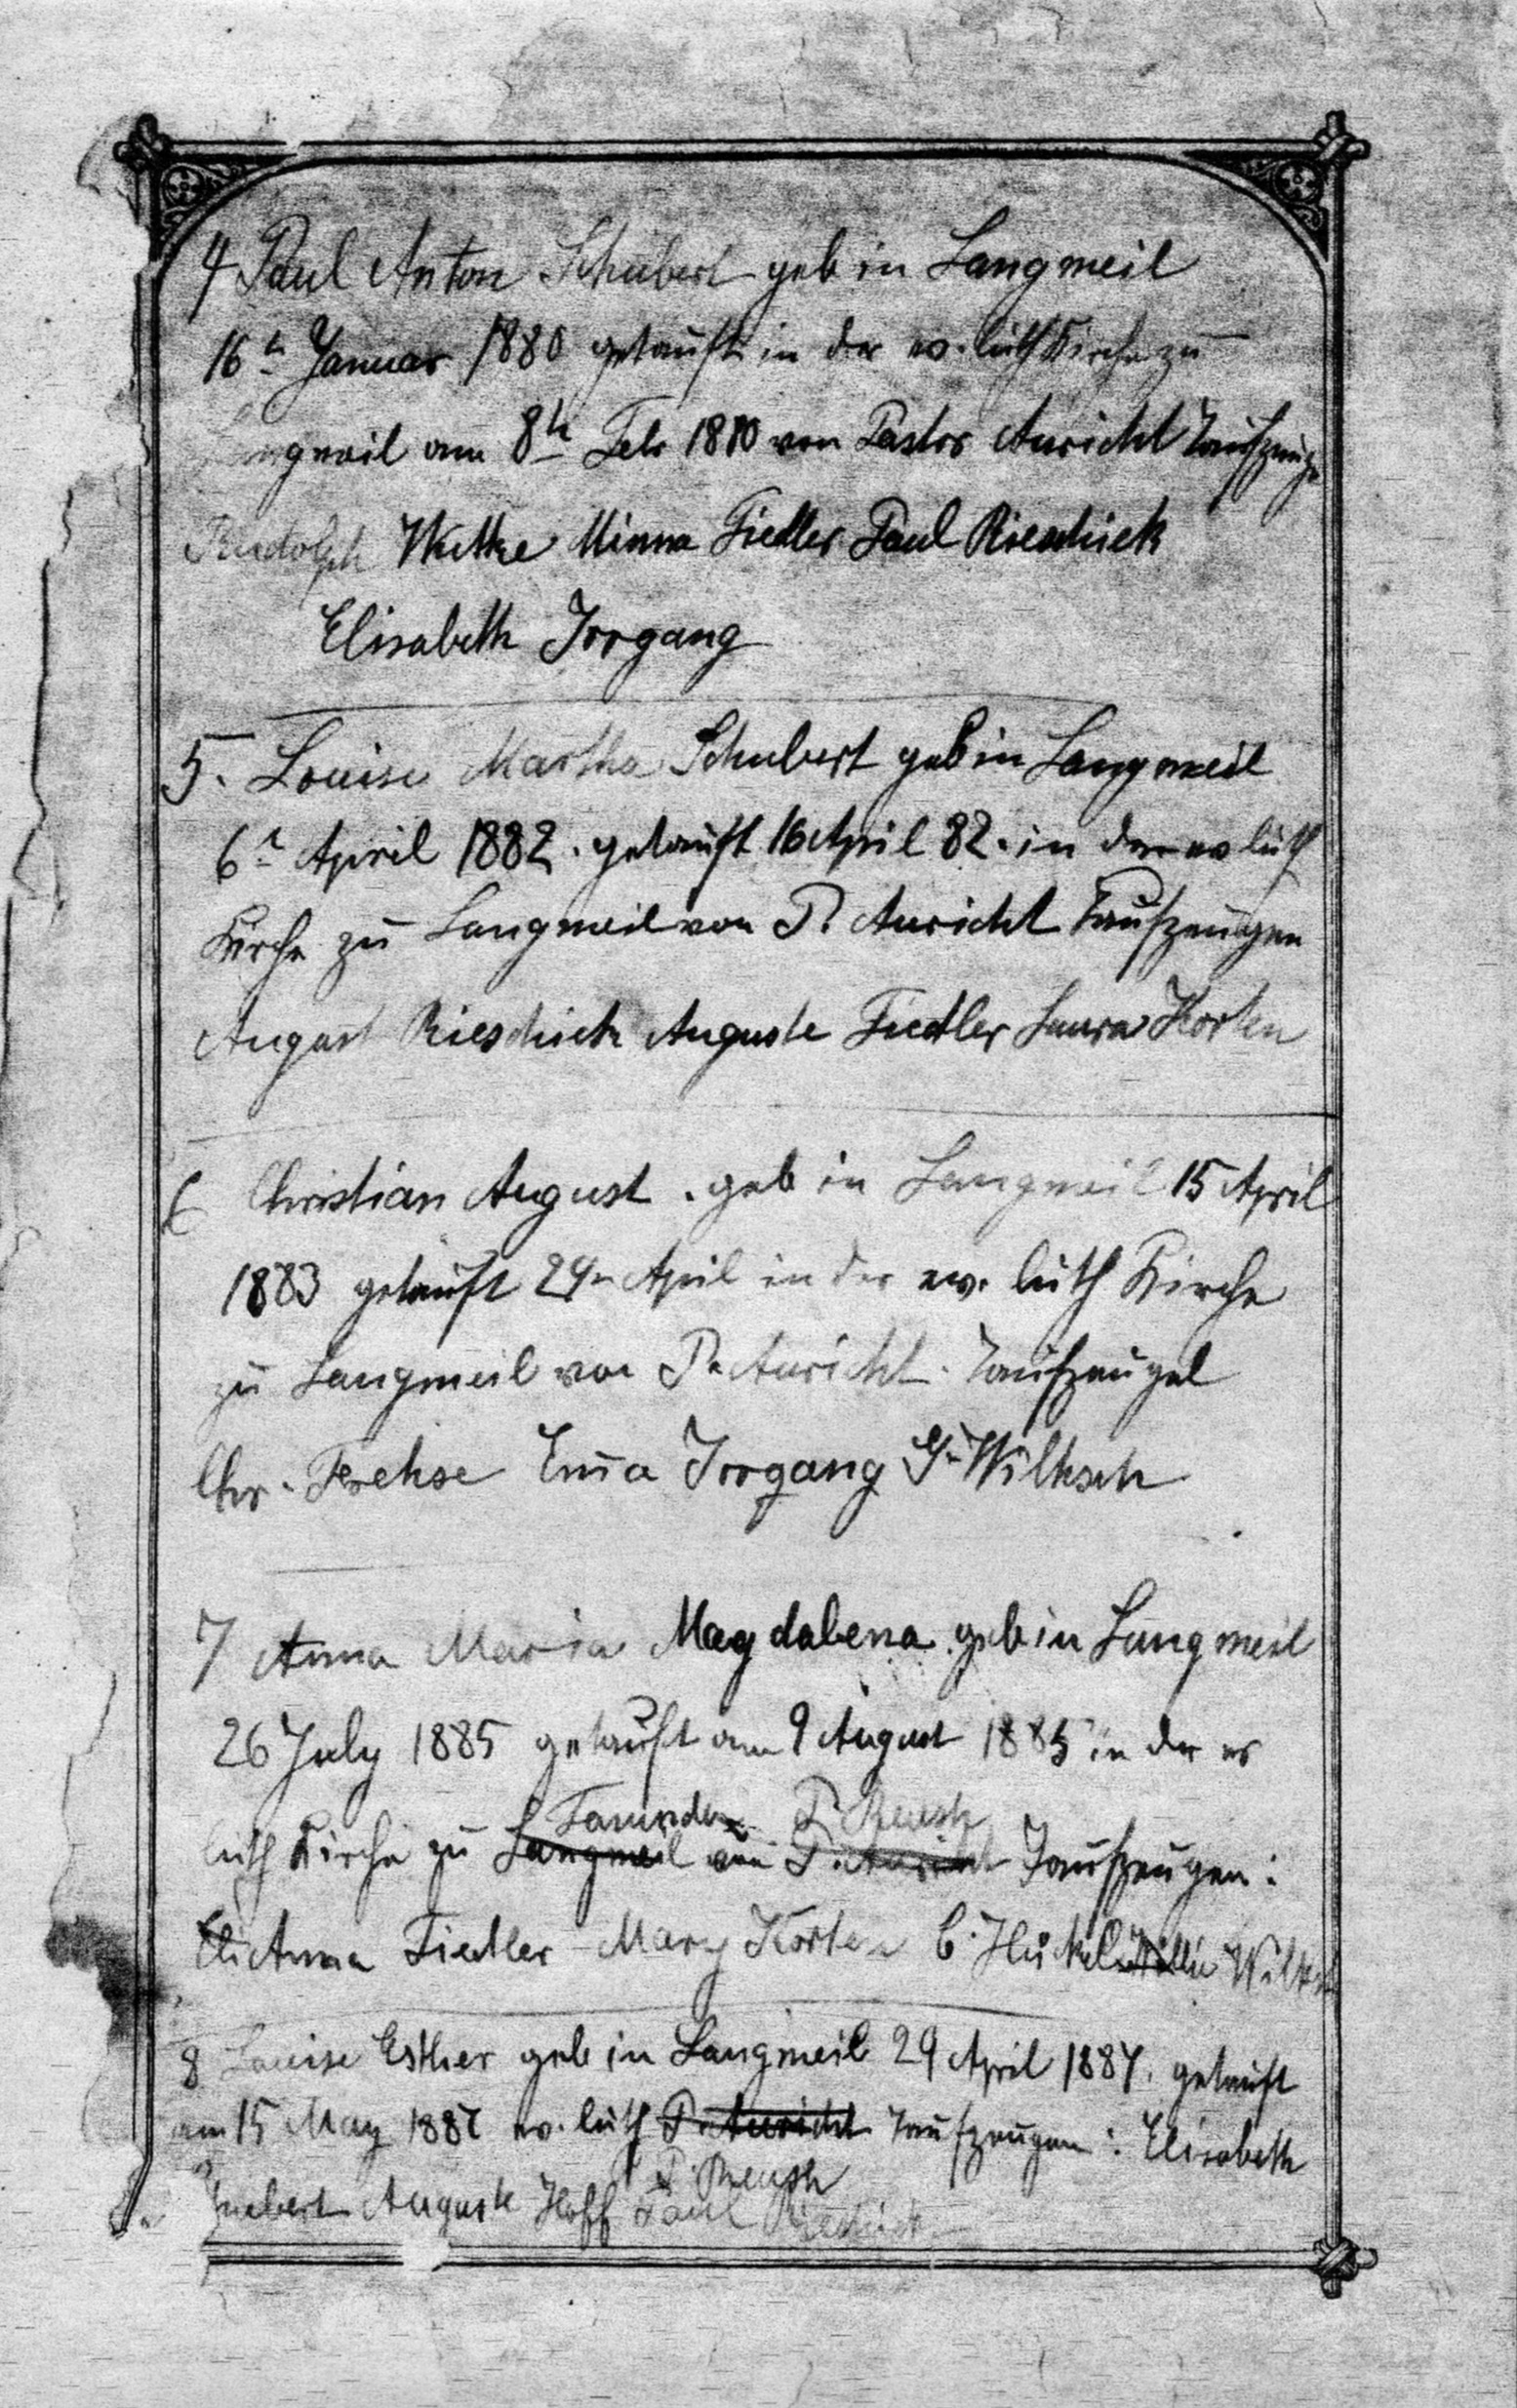 4 Paul Anton Schubert geb in Langmeil
16ten Januar 1880 getauft in der ev. luth Kirche zu
Langmeil am 8ten Febr 1880 von Pastor Auricht Taufzeuge
Rudolph Wuttke Minna Fiedler Paul Rieschiek
Elisabeth Irrgang
5. Louise Martha Schubert geb in Langmeil
6n April 1882. getauft 16 April 82. in der ev luth
Kirche zu Langmeil von P. Auricht Taufzeugen
August Rieschiek Auguste Fiedler Laura Korten
6 Christian August. geb in Langmeil 15 April
1883 getauft 29n April in der ev. luth Kirche
zu Langmeil von P. Auricht. Taufzeugen
Chr. Frehse Em̄a Irrgang G. Wilksch
7 Anna Maria Magdalena geb in Langmeil
26 July 1885 getauft am 9 August 1885 in der ev
Tanunda P. Reusch
luth Kirche zu Langmeil von P. Auricht Taufzeugen:
Anna Fiedler Mary Korten C. Willie
8 Louise Esther geb in Langmeil 29 April 1887. getauft
am 15 May 1887 ev. luth P. Auricht Taufzeugen: Elisabeth
P. Reusch
Schubert Auguste Hoff Paul Rieschiek